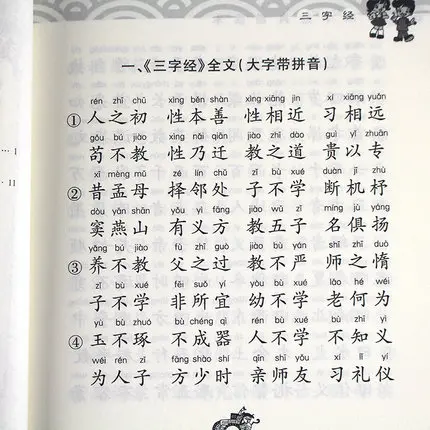 三字经
一、《三字经》全文(大字带拼音)
rén zhī chū xìng běn shàn xìng xiāng jìn xí xiāng yuǎn
①人之初 性本善 性相近 习相远
gǒu bú jiào xìng nǎi qiān jiào zhī dào guì yǐ zhuān
苟不教 性乃迁 教之道 贵以专
xī mèng mǔ zé lín chǔ zǐ bù xué duàn jī zhù
②昔孟母 择邻处 子不学 断机杼
dòu yān shān yǒu yì fāng jiào wǔ zǐ míng jù yáng
窦燕山 有义方 教五子 名俱扬
yǎng bú jiào fù zhī guò jiào bù yán shī zhī duò
③养不教 父之过 教不严 师之惰
zǐ bù xué fēi suǒ yí yòu bù xué lǎo hé wéi
子不学 非所宜 幼不学 老何为
yù bù zhuó bù chéng qì rén bù xué bù zhī yì
④玉不琢 不成器 人不学 不知义
wéi rén zǐ fāng shào shí qīn shī yǒu xí lǐ yí
为人子 方少时 亲师友 习礼仪
… 1
·· 11